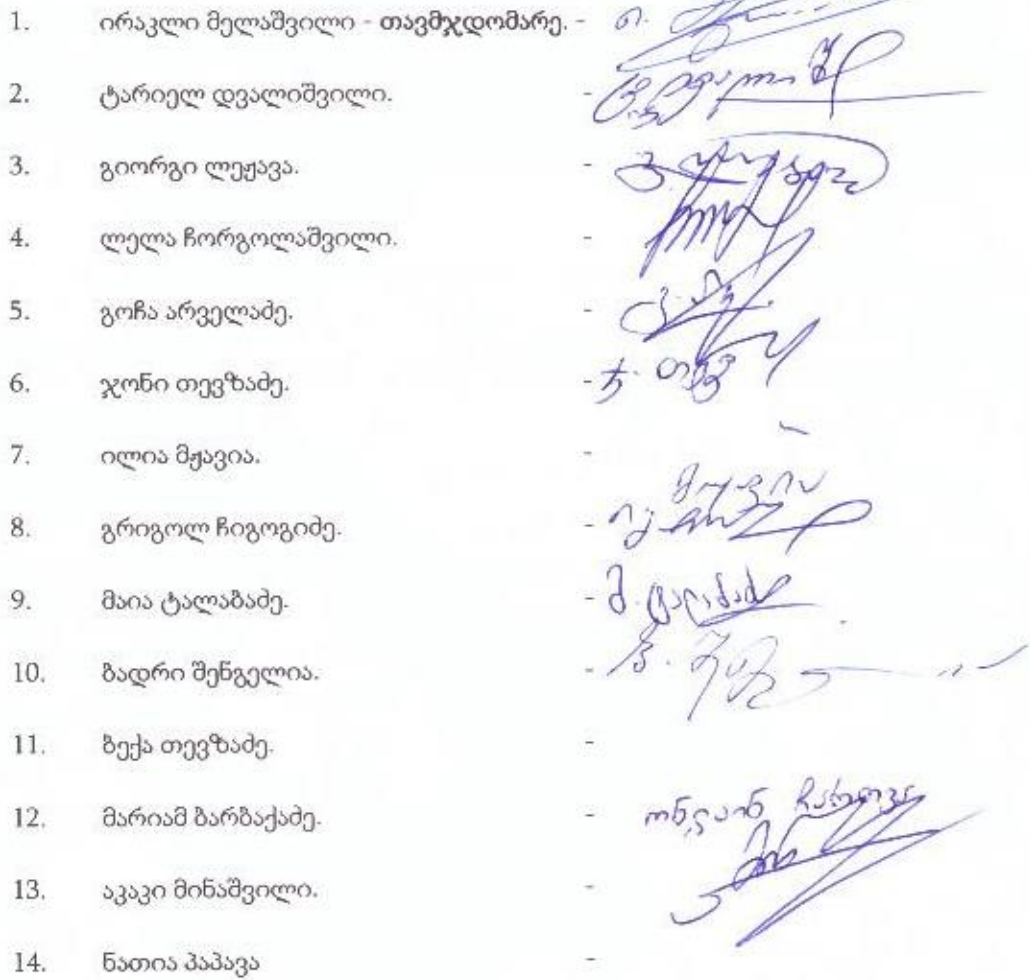 1. ირაკლი მელაშვილი - თავმჯდომარე. -
2. ტარიელ დვალიშვილი. -
3. გიორგი ლეჟავა. -
4. ლელა ჩორგოლაშვილი. -
5. გოჩა არველაძე. -
6. ჯონი თევზაძე. -
7. ილია მჟავია. -
8. გრიგოლ ჩიგოგიძე. -
9. მაია ტალაბაძე. - მ. ტალაბაძე
10. ბადრი შენგელია. -
11. ბექა თევზაძე. -
12. მარიამ ბარბაქაძე. - ონლაინ ჩართვა
13. აკაკი მინაშვილი. -
14. ნათია პაპავა -